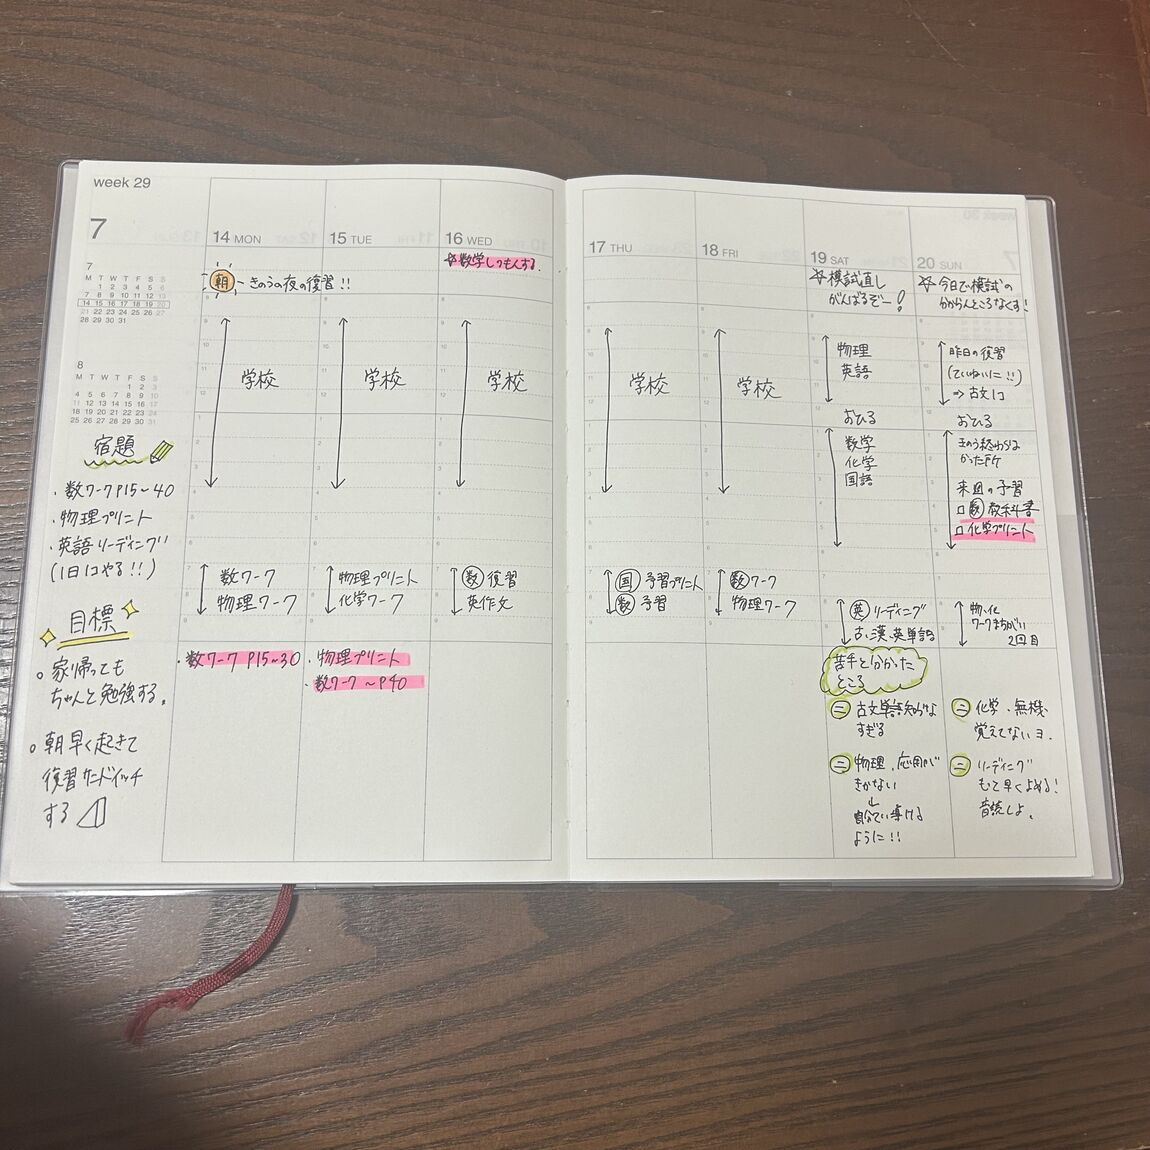 week 29
7
7
M T W T F S S
1 2 3 4 5 6
7 8 9 10 11 12 13
14 15 16 17 18 19 20
21 22 23 24 25 26 27
28 29 30 31
8
M T W T F S S
1 2 3
4 5 6 7 8 9 10
11 12 13 14 15 16 17
18 19 20 21 22 23 24
25 26 27 28 29 30 31
宿題
・数ワークP15～40
・物理プリント
・英語リーディング
(1日1コやる!!)
目標
○ 家帰っても
ちゃんと勉強する。
○ 朝早く起きて
復習サンドイッチ
する
14 MON
朝 - きのうの夜の復習!!
学校
数ワーク
物理ワーク
・数ワーク P15～30
15 TUE
学校
物理プリント
化学ワーク
・物理プリント
・数ワーク ～P40
16 WED
☆数学しつもんする。
学校
数 復習
英作文
17 THU
学校
国 予習プリント
数 予習
18 FRI
学校
数ワーク
物理ワーク
19 SAT
☆模試直し
がんばるぞー!
物理
英語
おひる
数学
化学
国語
英 リーディング
古、漢、英単語
苦手と分かった
ところ
古文単語知らな
すぎる
物理、応用がで
きない
↓
自分で導ける
ように!!
20 SUN
☆今日で模試の
分からんところなくす!
昨日の復習
(ていねいに!!)
⇒ 古文1コ
おひる
きのう終わらな
かった所
来週の予習
□ 数 教科書
□ 化学プリント
物、化
ワークまちがい
2回目
化学、無機、
覚えてないヨ.
リーディング
もっと早くよめる!
音読しよ。